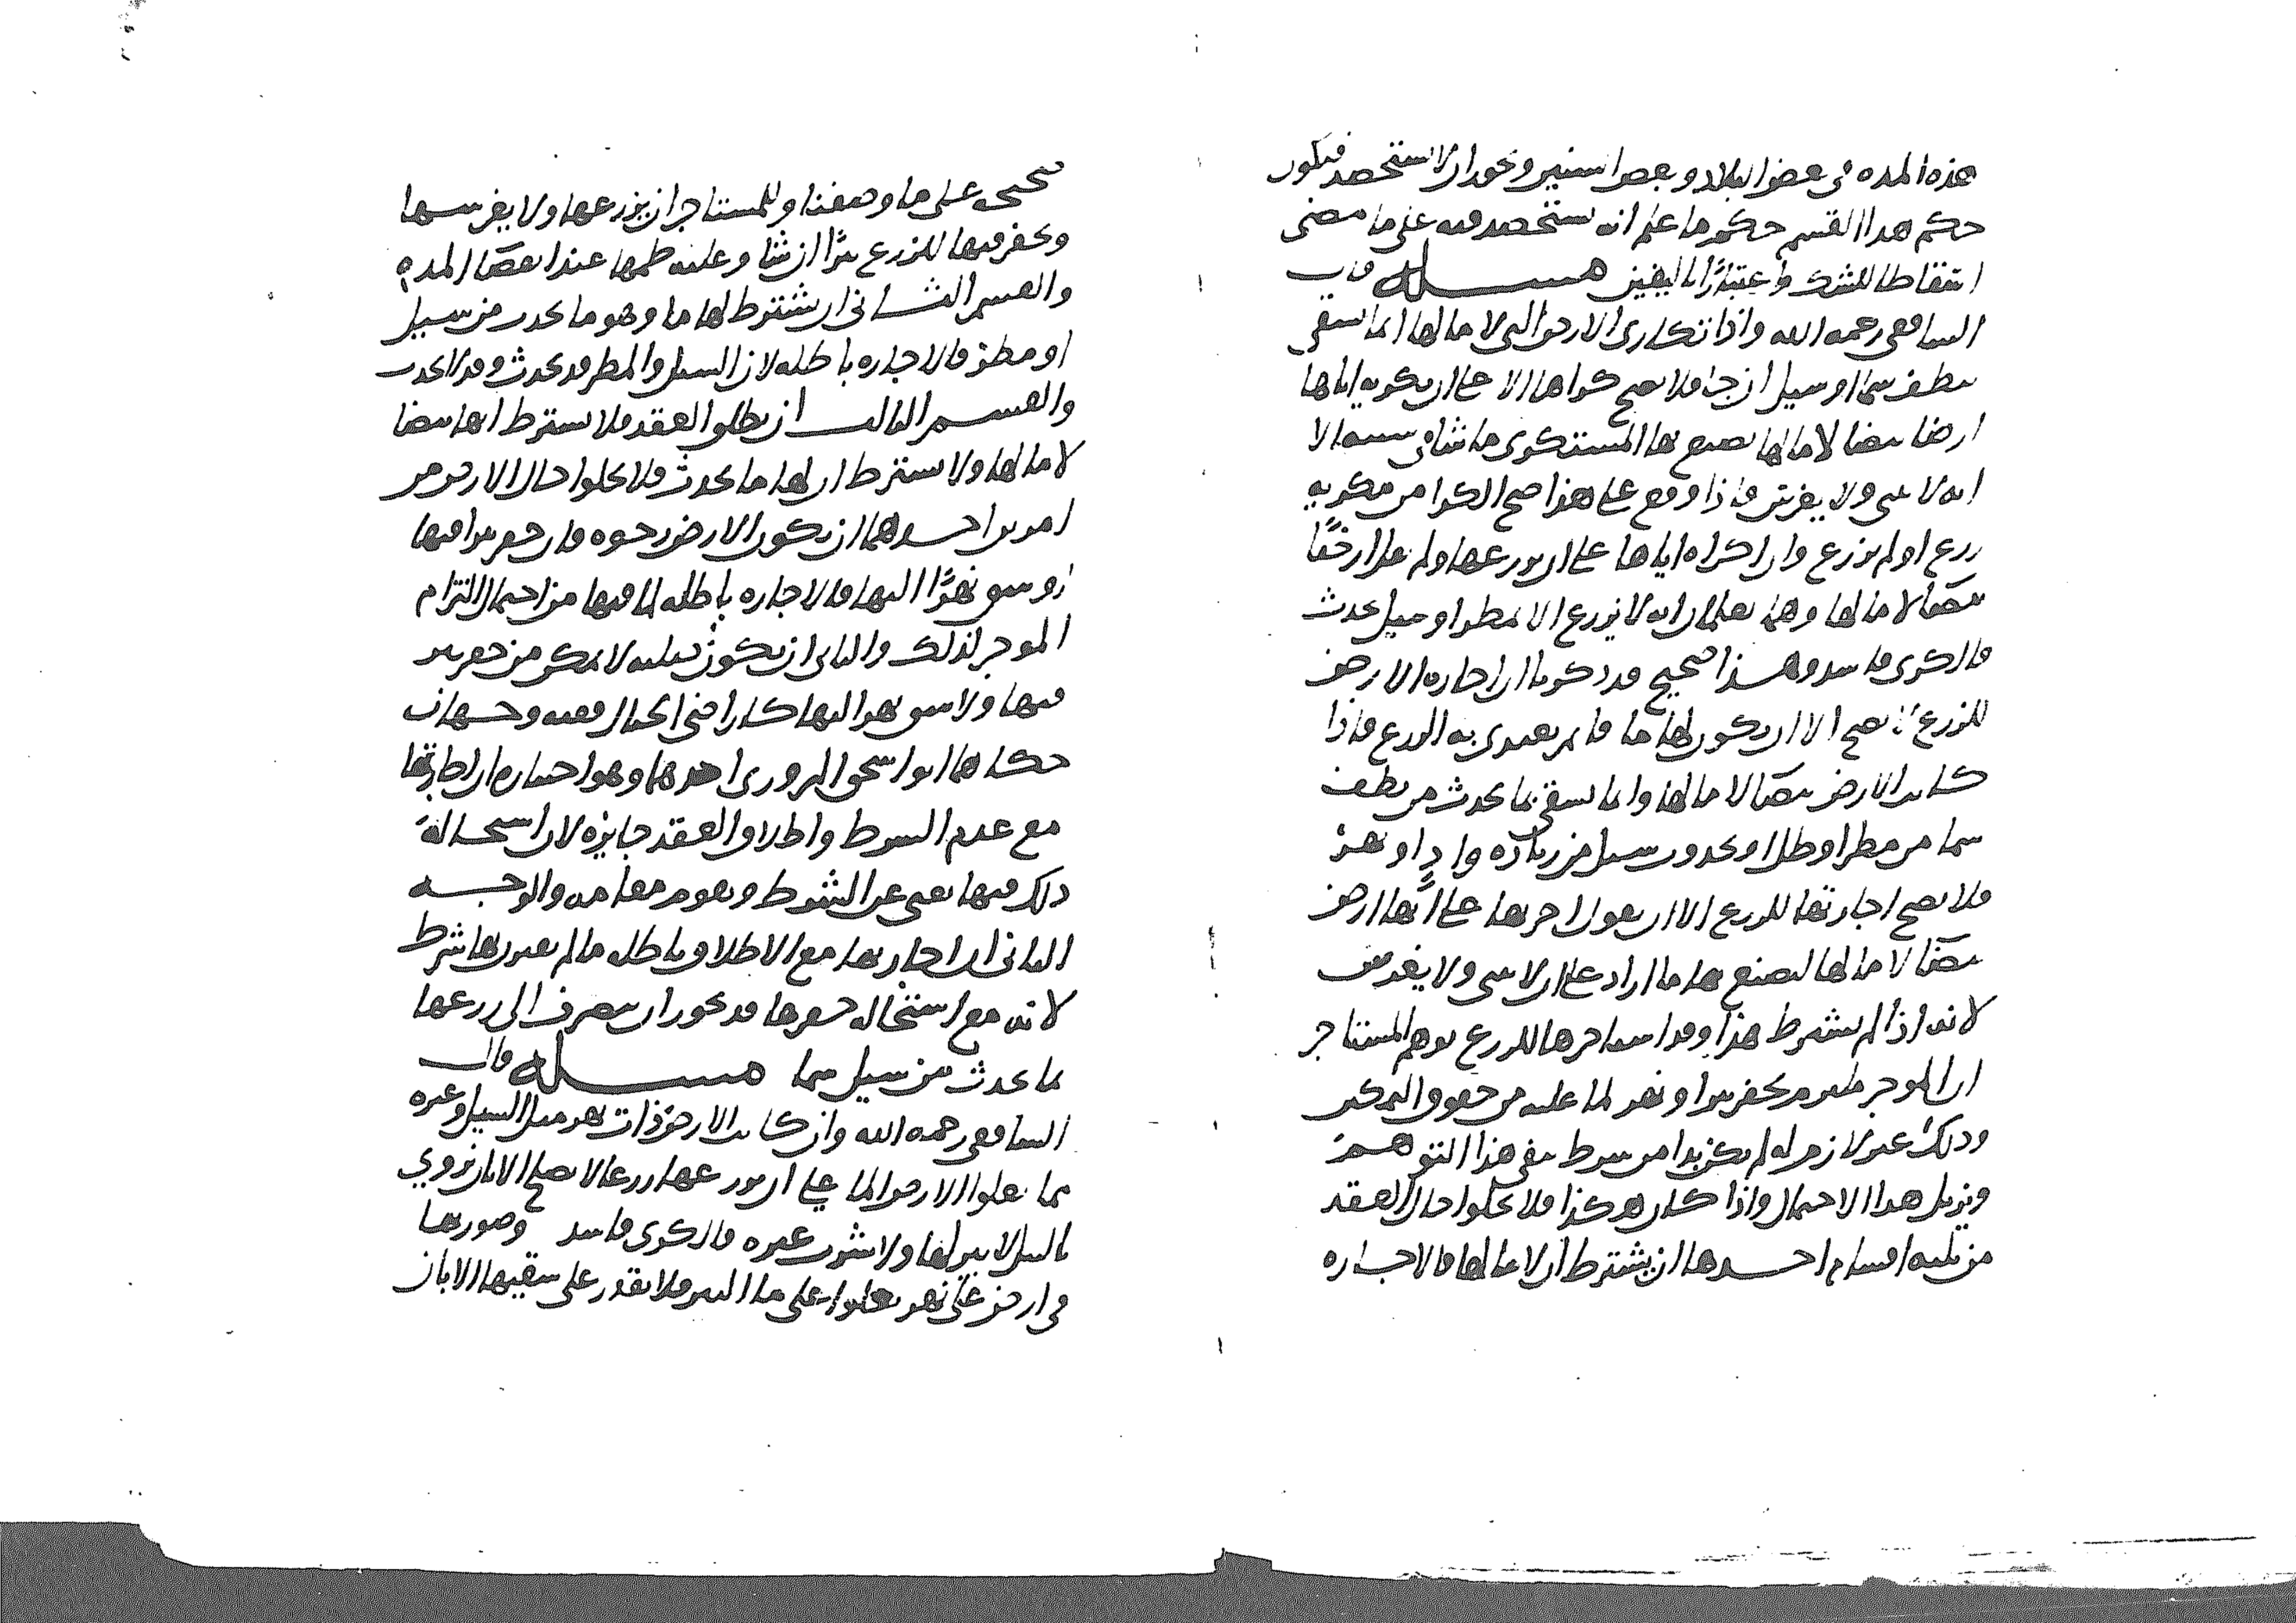 هذه المده في بعض البلاد وبعض السنين ويجوز ان لا يستحصد فيكون
حكم هذا القسم حكم ما علم انه يستحصد فيه على ما مضى
اسقاطا للشك واعتبارا باليقين مسله قال
الشافعي رحمه الله واذا تكارى الارض التي لا ما لها انما يسقى
بنطف سما او سيل ان جا فلا يصح كراها الا على ان يكريه اياها
ارضا بيضا لا ما لها يصنع بها المستكري ما شا في سنه الا
انه لا يبني ولا يغرس فاذا وقع على هذا صح الكرا من مكريه
زرع او لم يزرع وان اكراه اياها على ان يزرعها ولم يقل ارضا
بيضا لا ما لها وهما يعلمان انه لا يزرع الا بمطر او سيل يحدث
فالكرى فاسد وهذا صحيح قد ذكرنا ان اجاره الارض
للزرع لا تصح الا ان يكون لها ما قايم يعتدى به الزرع فاذا
كانت الارض بيضا لا ما لها وانما يسقى بما يحدث من نطف
سما من مطر او طل او يحدث من سيل من زياده واد او نهر
فلا يصح اجارتها للزرع الا ان يقول اجرتها على انها ارض
بيضا لا ما لها ليصنع بها ما اراد على ان لا يبني ولا يغرس
لانه اذا لم يشترط هذا وقد استاجرها للزرع توهم المستاجر
ان الموجر ملتزم بحفر بير او نهر لما عليه من حقوق التمكين
وذلك غير لازم له لم يكن بدا من شرط ينفي هذا التوهم
ويزيل هذا الاحتمال واذا كان هكذا فلا يخلوا حال العقد
من ثلثه اقسام احدها ان يشترط ان لا ما لها فالاجاره
صحيحه على ما وصفنا وللمستاجر ان يزرعها ولا يغرسها
ويحفر فيها للزرع بئرا ان شا وعليه طمها عند انقضا المده
والقسم الثاني ان يشترط لها ما وهو ما يحدث من سيل
او مطر فالاجاره باطله لان السيل والمطر قد يحدث وقد لا يحدث
والقسم الثالث ان يطلق العقد فلا يشترط انها بيضا
لا ما لها ولا يشترط ان لها ما يحدث فلا يخلوا حال الارض من
امرين احدهما ان يكون الارض رخوه يمكن حفر بير فيها
او سوق نهر اليها فالاجاره باطله لما فيها من احتمال التزام
الموجر لذلك والثاني ان يكون صلبه لا يمكن من حفر بير
فيها ولا سوق نهر اليها كاراضي الجبال ففيه وجهان
حكاهما ابو اسحق المروزي احدهما وهو اختياره ان اجارتها
مع عدم الشرط واطلاق العقد جايزه لان استحاله
ذلك فيها يغني عن الشرط ويقوم مقامه والوجه
الثاني ان اجارتها مع الاطلاق باطله ما لم يقترن بها شرط
لانه مع استحاله حفرها قد يجوز ان ينصرف الى زرعها
بما يحدث من سيل سما مسله قال
الشافعي رحمه الله وان كانت الارض ذات نهر مثل النيل وغيره
مما يعلوا الارض الما على ان يزرعها زرعا لا يصلح الا بان تروى
بالنيل لا بير لها ولا شرب غيره فالكرى فاسد وصورتها
في ارض على نهر يعلوا على ما النهر فلا يقدر على سقيها الا بان